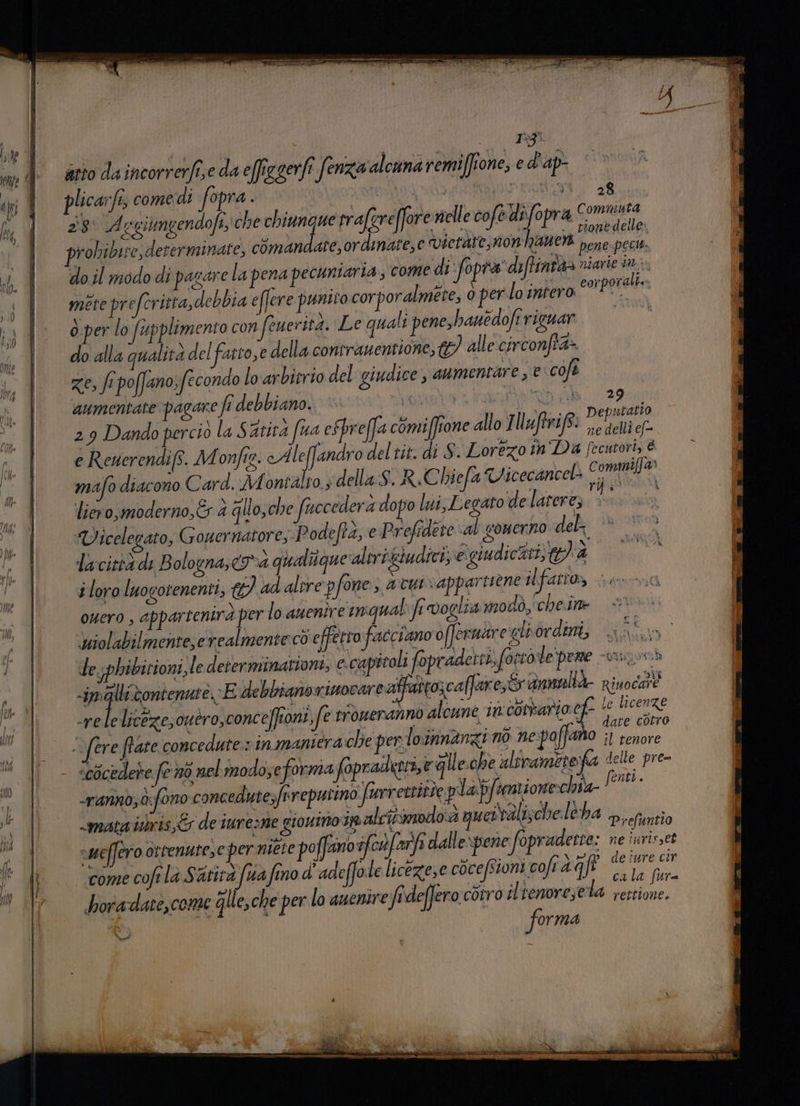 13
atto da incorrersi, e da essiggersi senza alcuna remissione, e d'ap-
plicarsi, come di sopra.
28 Aggiungendosi, che chiunque trasgressore nelle cose di sopra
prohibite, determinate, cōmandate, ordinate, e vietate, non hauen
do il modo di pagare la pena pecuniaria, come di sopra distinta-
mēte prescritta, debbia essere punito corporalmēte, ò per lo intero
ò per lo supplimento con seuerità. Le quali pene, hauēdosi riguar
do alla qualità del fatto, e della contrauentione, & alle circonstā-
ze, si possano, secondo lo arbitrio del giudice, aumentare, e cosi
aumentate pagare si debbiano.
29 Dando perciò la Sātità sua espressa cōmissione allo Illustriss.
e Reuerendiss. Monsig. Alessandro del tit. di S. Lorēzo in Da
maso diacono Card. Montalto, della S. R. Chiesa Vicecancel-
liero, moderno, & à q̄llo, che succederà dopo lui, Legato de latere,
Vicelegato, Gouernatore, Podestà, e Presidēte al gouerno del-
la città di Bologna, & à qualūque altri giudici, e giudicāti, & à
i loro luogotenenti, & ad altre psone, à cui appartiene il fatto,
ouero, appartenirà per lo auenire in qual si voglia modo, che in-
uiolabilmente, e realmente cō effetto facciano osseruare gli ordini,
le phibitioni, le determinationi, e capitoli sopradetti, sotto le pene
in q̄lli contenute. E debbiano riuocare affatto, cassare, & annulla-
re le licēze, ouero, concessioni, se troueranno alcune in cōtrario es-
sere state concedute: in maniera che per lo innanzi nō ne possano
cōcedere se nō nel modo, e forma sopradetti, e q̄lle che altramēte sa
ranno, ò sono concedute, si reputino surrettitie p la psuntione chia-
mata iuris, & de iure: ne giouino in alcū modo à quei tali, che le ha
uessero ottenute, e per niēte possano iscusarsi dalle pene sopradette:
come cosi la Sātità sua sino d'adesso le licēze, e cōcessioni cosi à q̄st'
hora date, come q̄lle, che per lo auenire si dessero cōtro il tenore, e la
forma
28
Commuta
tione delle
pene pecu-
niarie in
corporali.
29
Deputatio
ne delli es-
secutori, &
Commissa
rij.
Riuocare
le licenze
date cōtro
il tenore
delle pre-
senti.
Presuntio
ne iuris, et
de iure cir
ca la sur-
rettione.